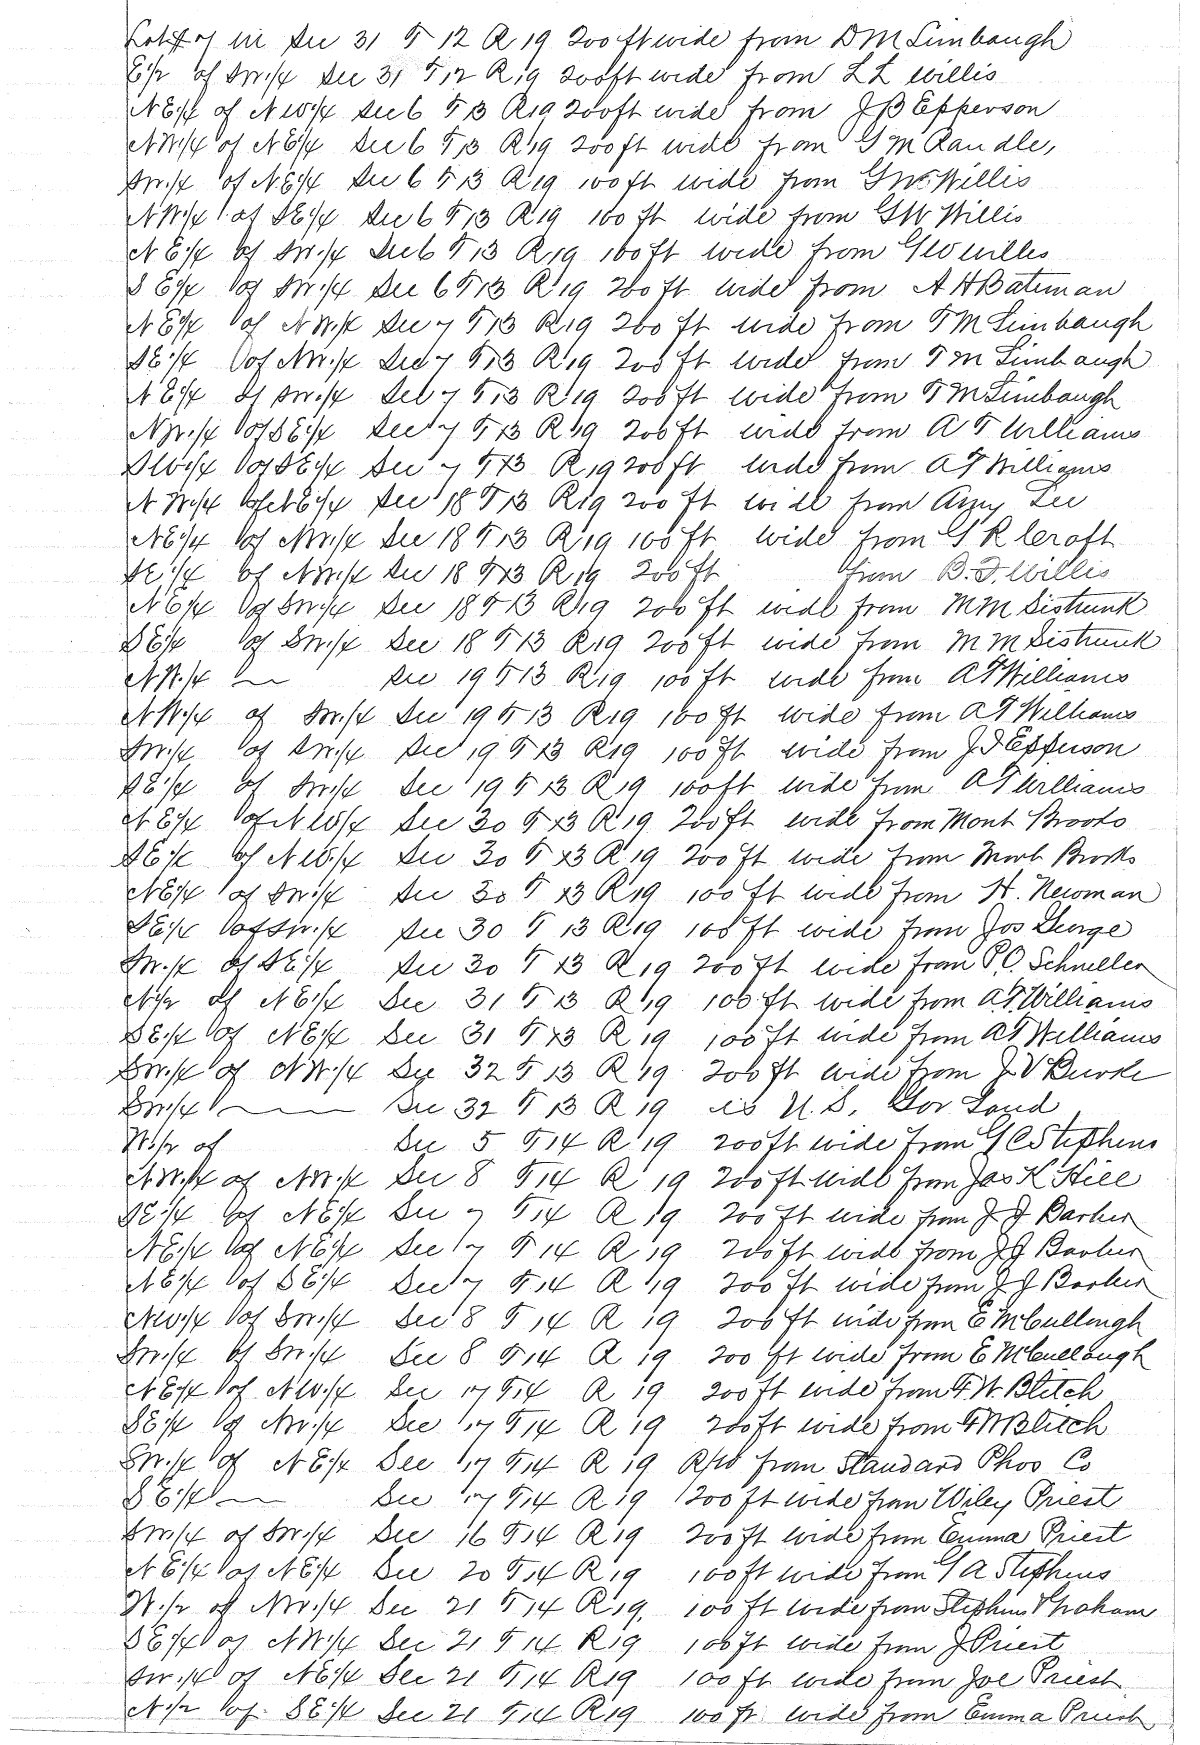 Lot # 7 in Sec 31 T 12 R 19 200 ft wide from D M Limbaugh
E 1/2 of SW 1/4 Sec 31 T 12 R 19 200 ft wide from L L Willis
NE 1/4 of NW 1/4 Sec 6 T 13 R 19 200 ft wide from J B Epperson
NW 1/4 of NE 1/4 Sec 6 T 13 R 19 200 ft wide from G M Randle,
SW 1/4 of NE 1/4 Sec 6 T 13 R 19 100 ft wide from G W Willis
NW 1/4 of SE 1/4 Sec 6 T 13 R 19 100 ft wide from G W Willis
NE 1/4 of SW 1/4 Sec 6 T 13 R 19 100 ft wide from G W Willis
SE 1/4 of SW 1/4 Sec 6 T 13 R 19 200 ft wide from A H Bateman
NE 1/4 of NW 1/4 Sec 7 T 13 R 19 200 ft wide from T M Limbaugh
SE 1/4 of NW 1/4 Sec 7 T 13 R 19 200 ft wide from T M Limbaugh
NE 1/4 of SW 1/4 Sec 7 T 13 R 19 200 ft wide from T M Limbaugh
NW 1/4 of SE 1/4 Sec 7 T 13 R 19 200 ft wide from A T Williams
SW 1/4 of SE 1/4 Sec 7 T 13 R 19 200 ft wide from A T Williams
NW 1/4 of NE 1/4 Sec 18 T 13 R 19 200 ft wide from Amy Lee
NE 1/4 of NW 1/4 Sec 18 T 13 R 19 100 ft wide from G R Croft
SE 1/4 of NW 1/4 Sec 18 T 13 R 19 200 ft from B. F. Willis
NE 1/4 of SW 1/4 Sec 18 T 13 R 19 200 ft wide from M M Sistrunk
SE 1/4 of SW 1/4 Sec 18 T 13 R 19 200 ft wide from M M Sistrunk
NW 1/4 — Sec 19 T 13 R 19 100 ft wide from A T Williams
NW 1/4 of SW 1/4 Sec 19 T 13 R 19 100 ft wide from A T Williams
SW 1/4 of SW 1/4 Sec 19 T 13 R 19 100 ft wide from J F Epperson
SE 1/4 of SW 1/4 Sec 19 T 13 R 19 100 ft wide from A T Williams
NE 1/4 of NW 1/4 Sec 30 T 13 R 19 200 ft wide from Mont Brooks
SE 1/4 of NW 1/4 Sec 30 T 13 R 19 200 ft wide from Mont Brooks
NE 1/4 of SW 1/4 Sec 30 T 13 R 19 100 ft wide from H. Newman
SE 1/4 of SW 1/4 Sec 30 T 13 R 19 100 ft wide from Jos George
SW 1/4 of SE 1/4 Sec 30 T 13 R 19 200 ft wide from P. O. Schneller
N 1/2 of NE 1/4 Sec 31 T 13 R 19 100 ft wide from A. T. Williams
SE 1/4 of NE 1/4 Sec 31 T 13 R 19 100 ft wide from A T Williams
SW 1/4 of NW 1/4 Sec 32 T 13 R 19 200 ft wide from J. V Burke
SW 1/4 — Sec 32 T 13 R 19 is U. S. Gov Land
W 1/2 of Sec 5 T 14 R 19 200 ft wide from G C Stephens
NW 1/4 of NW 1/4 Sec 8 T 14 R 19 200 ft wide from Jas K Hill
SE 1/4 of NE 1/4 Sec 7 T 14 R 19 200 ft wide from J J Barker
NE 1/4 of NE 1/4 Sec 7 T 14 R 19 200 ft wide from J J Barker
NE 1/4 of SE 1/4 Sec 7 T 14 R 19 200 ft wide from J J Barker
NW 1/4 of SW 1/4 Sec 8 T 14 R 19 200 ft wide from E McCullough
SW 1/4 of SW 1/4 Sec 8 T 14 R 19 200 ft wide from E McCullough
NE 1/4 of NW 1/4 Sec 17 T 14 R 19 200 ft wide from F. W. Blitch
SE 1/4 of NW 1/4 Sec 17 T 14 R 19 200 ft wide from F W Blitch
SW 1/4 of NE 1/4 Sec 17 T 14 R 19 R/W from Standard Phos Co
SE 1/4 — Sec 17 T 14 R 19 200 ft wide from Wiley Priest
SW 1/4 of SW 1/4 Sec 16 T 14 R 19 200 ft wide from Emma Priest
NE 1/4 of NE 1/4 Sec 20 T 14 R 19 100 ft wide from G A Stephens
W 1/2 of NW 1/4 Sec 21 T 14 R 19, 100 ft wide from Stephens & Graham
SE 1/4 of NW 1/4 Sec 21 T 14 R 19 100 ft wide from J Priest
SW 1/4 of NE 1/4 Sec 21 T 14 R 19 100 ft wide from Joe Priest
N 1/2 of SE 1/4 Sec 21 T 14 R 19 100 ft wide from Emma Priest